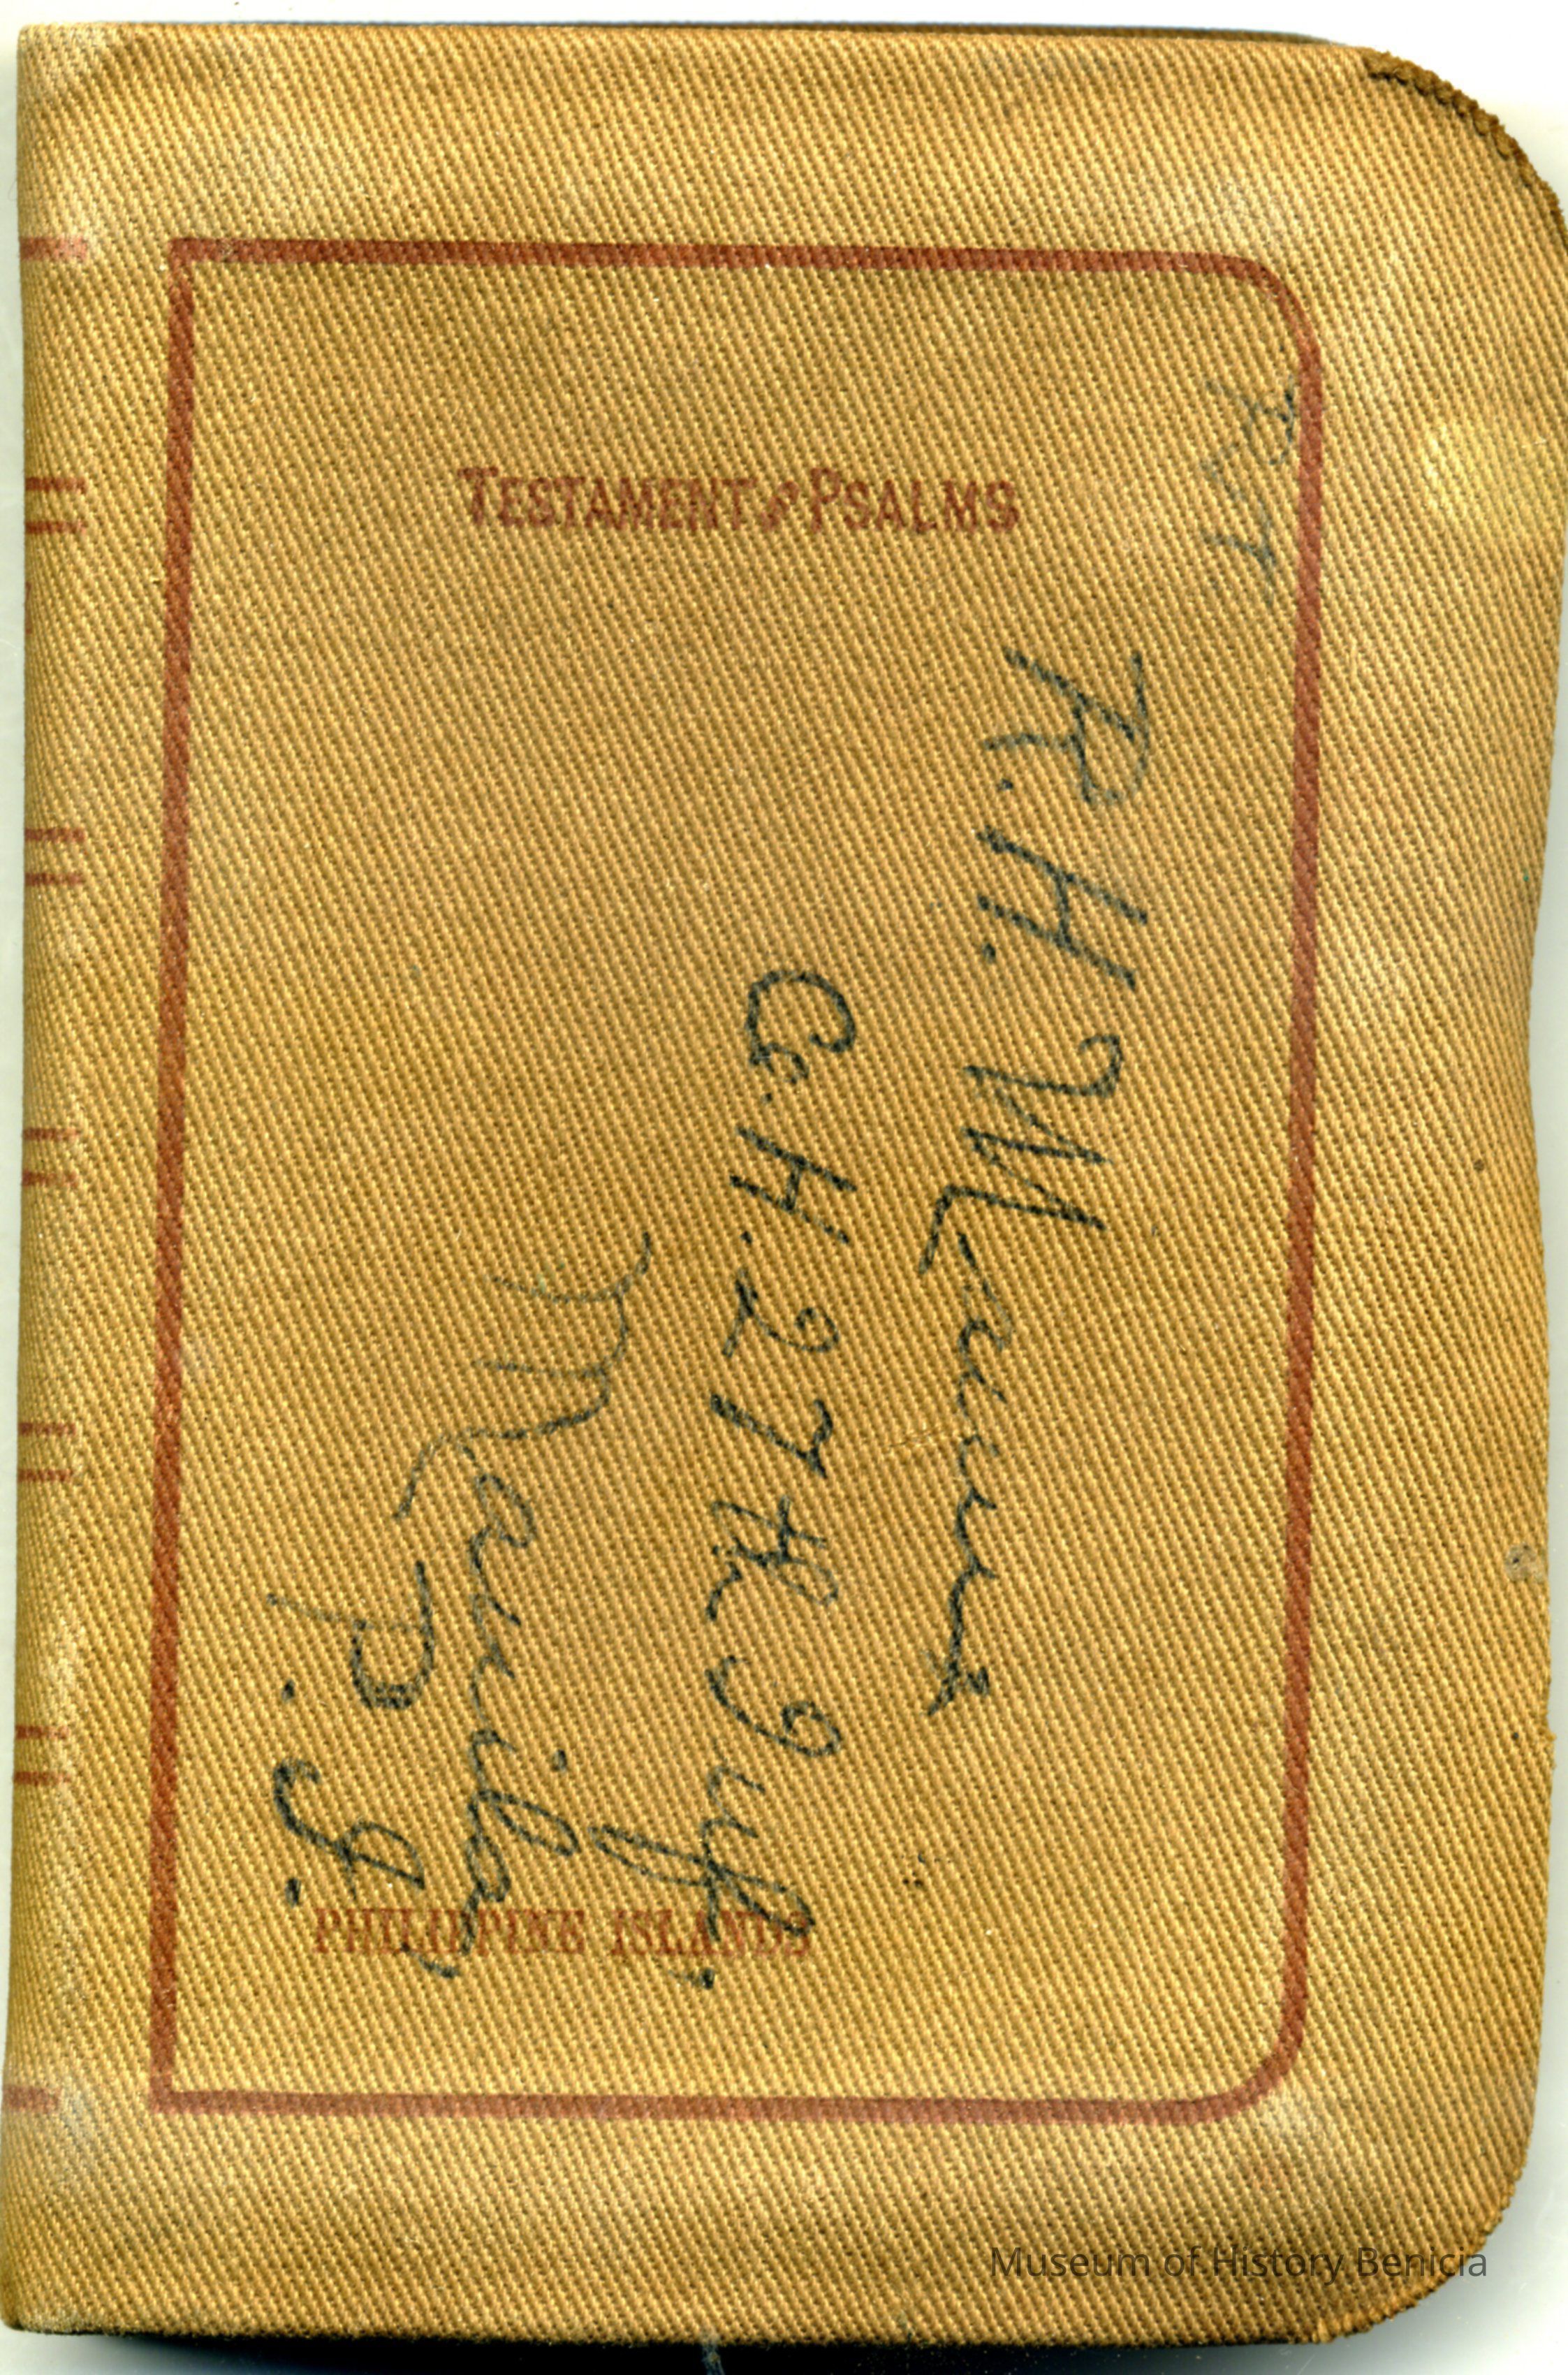 TESTAMENT & PSALMS
R. H.
Co. H. 27th Inf.
Manila,
P. I.
PHILIPPINE ISLANDS
Museum of History Benicia